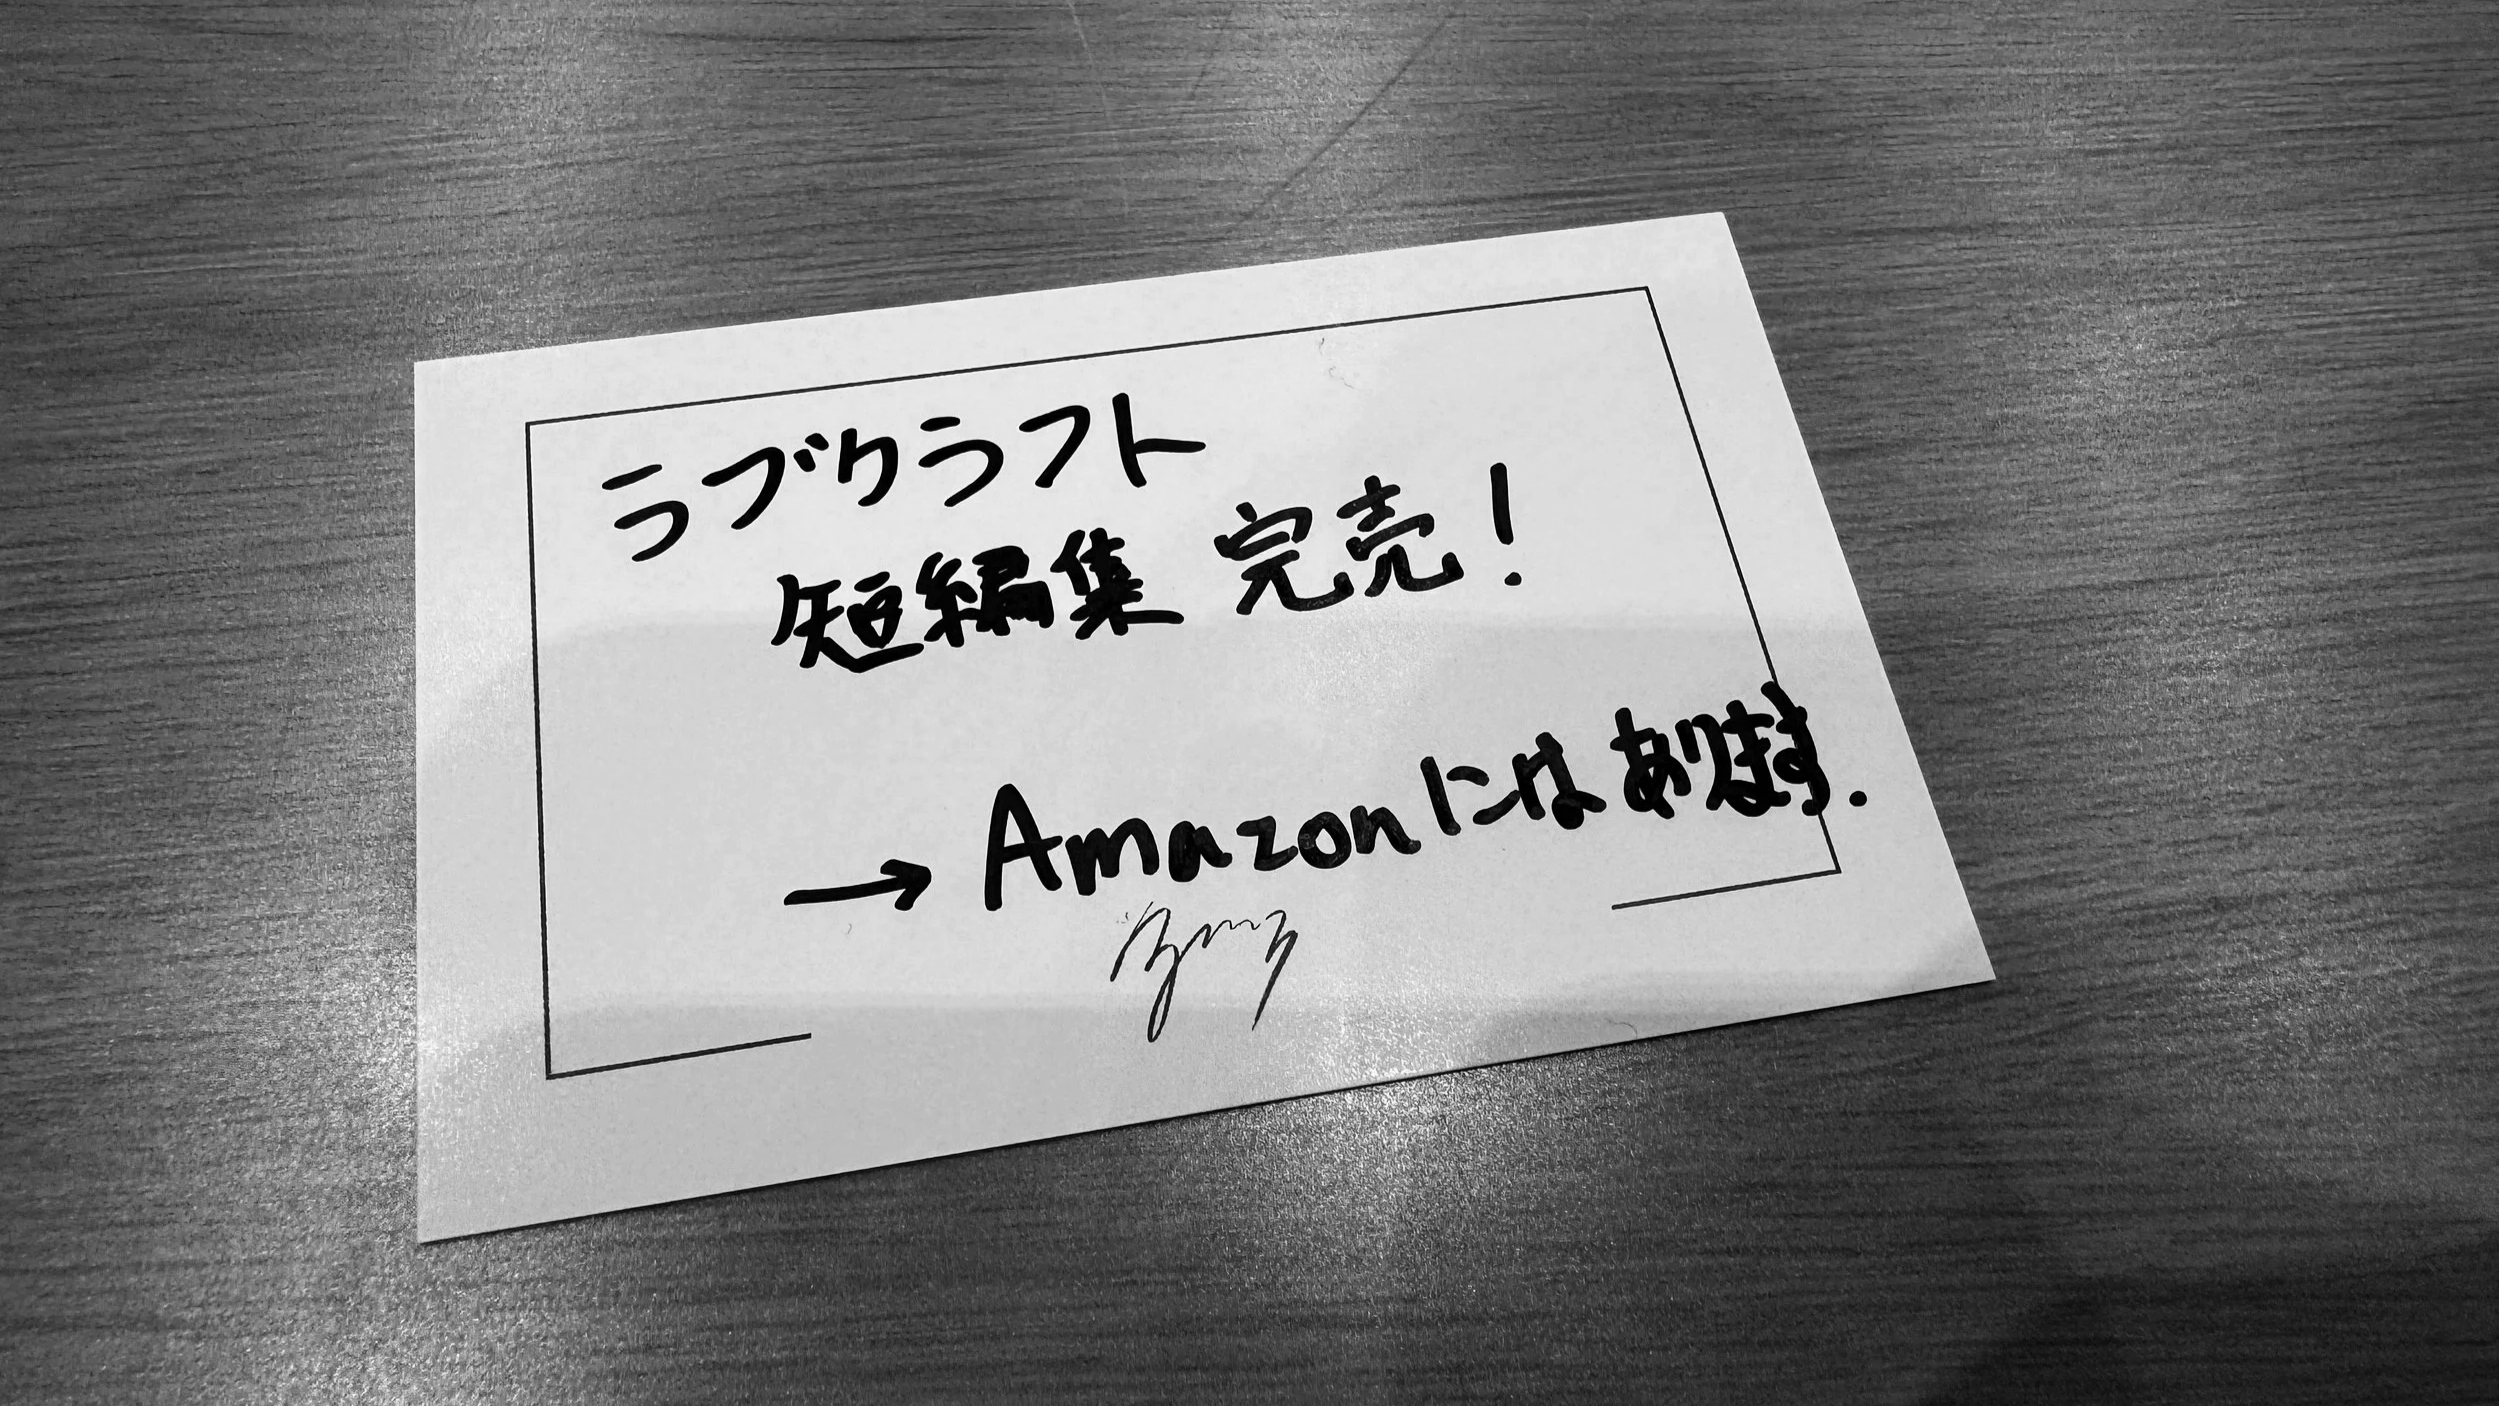 ラブクラフト
短編集 完売!
→ Amazonにはあります.